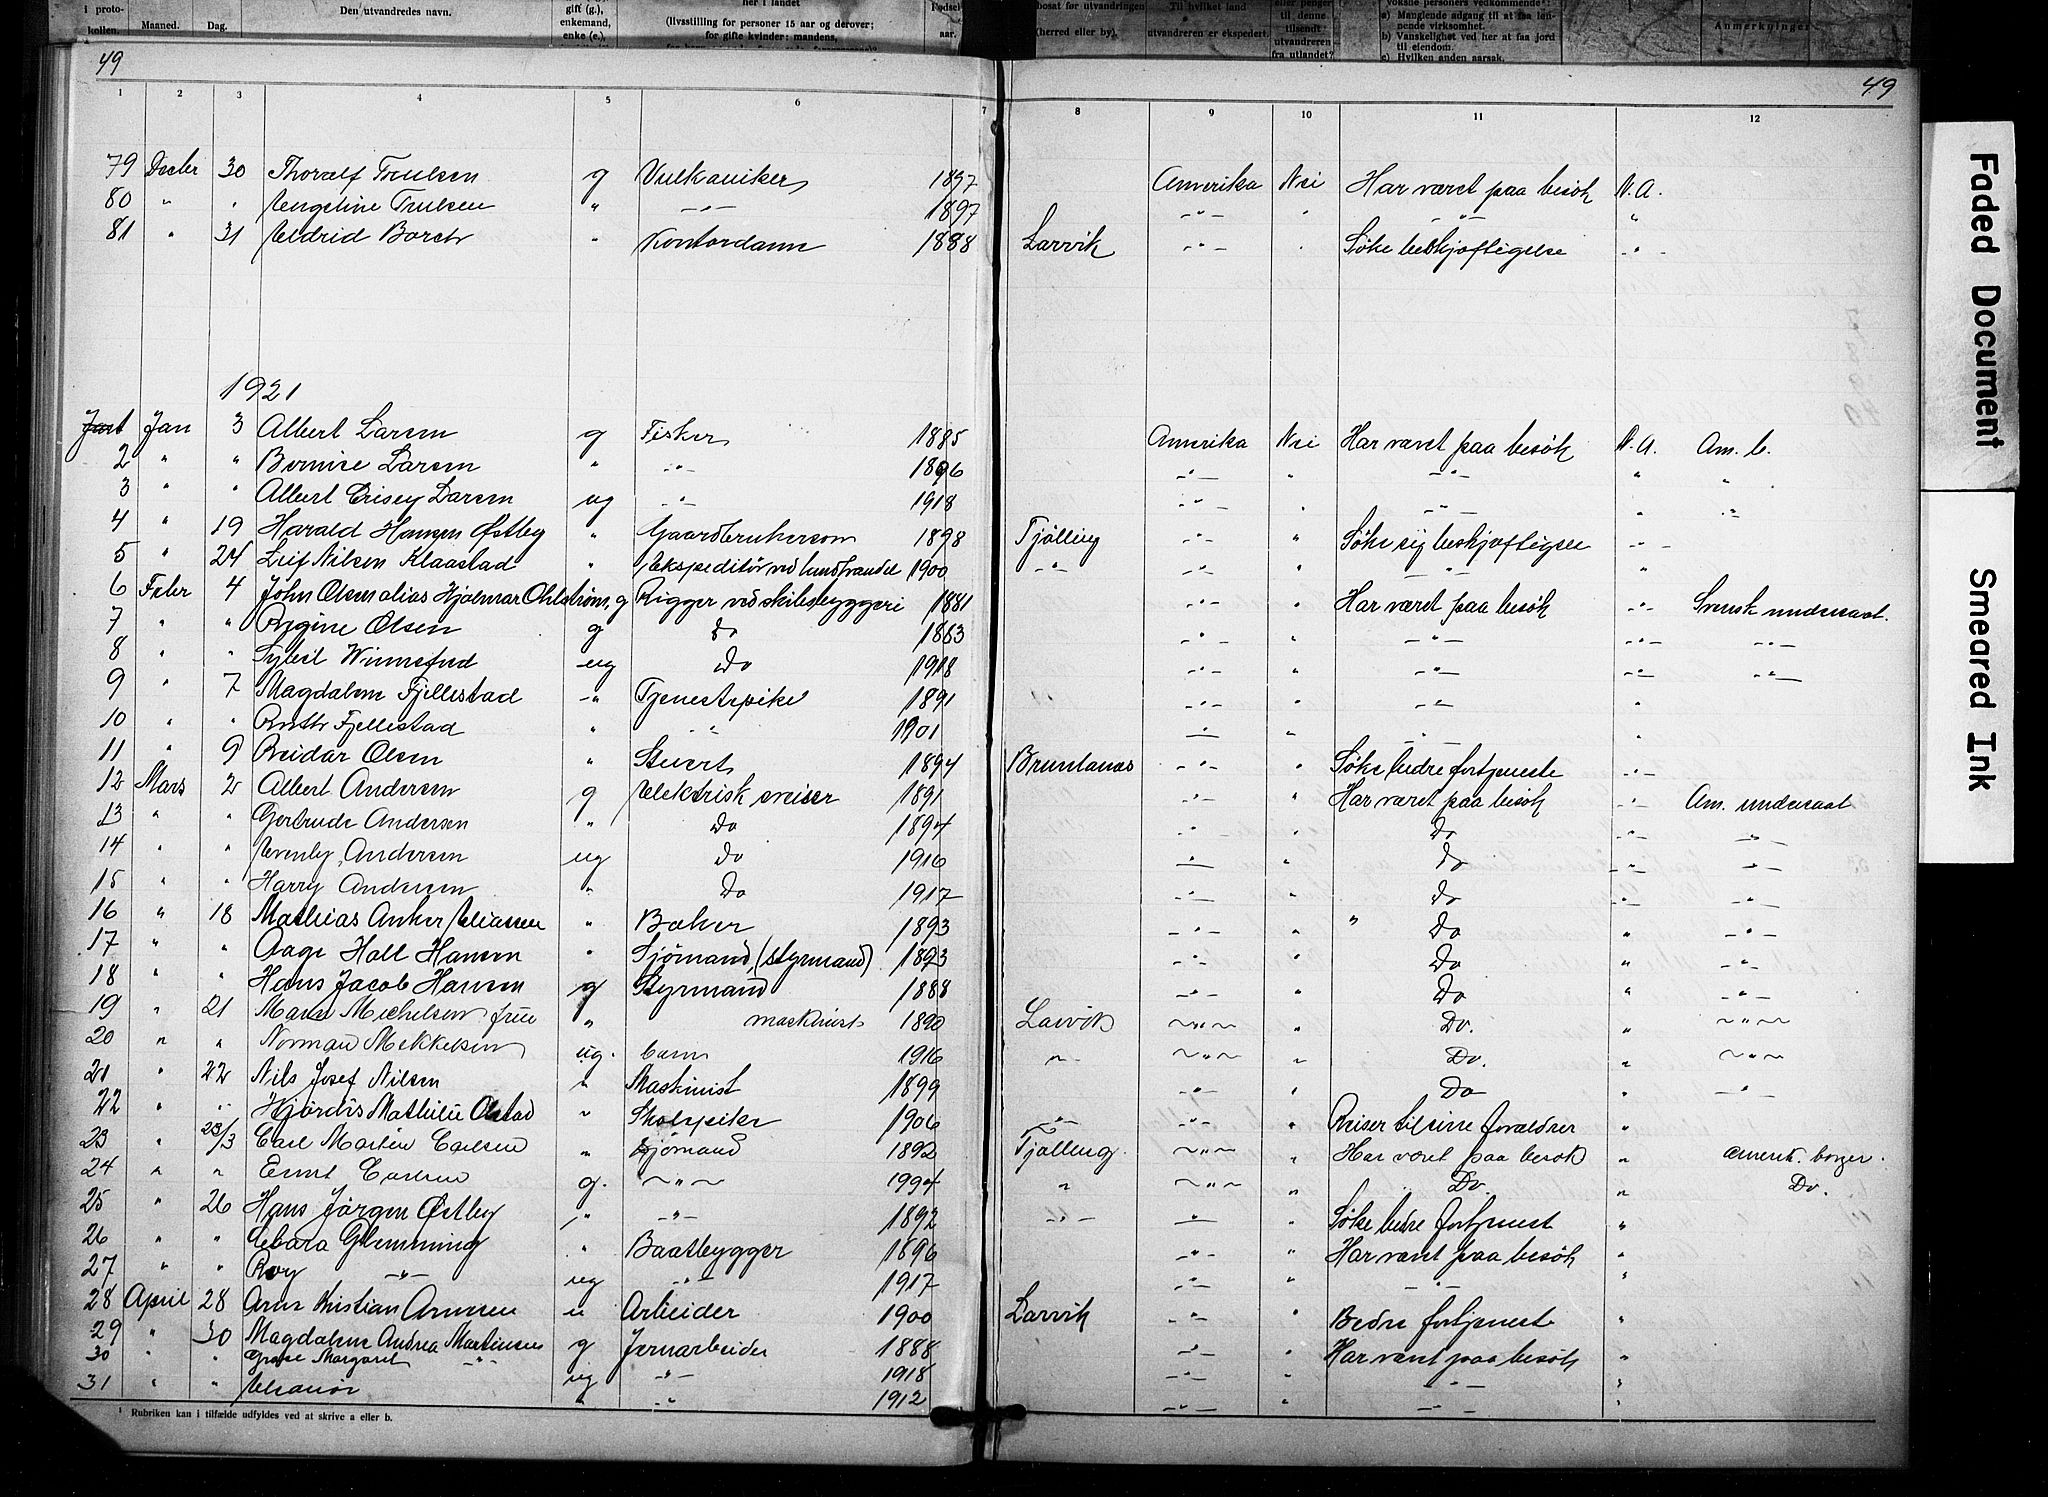 i proto-
kollen.
Maaned.
Dag.
Den utvandredes navn.
gift (g.),
enkemand,
enke (e.),
her i landet
(livsstilling for personer 15 aar og derover;
for gifte kvinder: mandens,
Fødsels-
aar.
bosat før utvandringen
(herred eller by).
Til hvilket land
utvandreren er ekspedert.
eller penger
til denne
tilsendt
utvandreren
fra utlandet?
voksne personers vedkommende:
a) Manglende adgang til at faa løn-
nende virksomhet.
b) Vanskelighet ved her at faa jord
til eiendom.
c) Hvilken anden aarsak.
Anmerkninger
49
49
1 2 3 4 5 6 7 8 9 10 11 12
79 Decbr 30 Thoralf Trulsen g Vulkaniker 1897 Amerika Nei Har været paa besök N.A.
80 " " Engeline Trulsen " -"- 1897 -"- " -"- "
81 " 31 Eldrid Borch " Kontordame 1888 Larvik -"- " Söke beskjæftigelse -"-
1921
Jan 3 Albert Larsen g Fisker 1885 Amerika Nei Har været paa besök N.A. Am. b.
2 " " Bernise Larsen " -"- 1896 -"- " -"- " "
3 " " Albert Crisey Larsen ug -"- 1918 -"- " -"- " "
4 " 19 Harald Hansen Østby " Gaardbrukersøn 1898 Tjölling -"- " Söke sig beskjæftigelse -"-
5 " 24 Leif Nilsen Klaastad " Ekspeditör ved landhandel 1900 -"- -"- " -"- "
6 Febr 4 John Olsen alias Hjalmar Ohlström, g Rigger ved skibsbyggeri 1881 -"- " Har været paa besök -"- Svensk undersaat.
7 " " Regine Olsen g Do 1883 -"- " -"- -"- -"-
8 " " Sybil Winnsfud ug Do 1918 -"- " -"- -"- -"-
9 " 7 Magdalene Fjellestad -"- Tjenestepike 1891 -"- " -"- "
10 " " Ruth Fjellestad " " 1901 -"- " -"- "
11 " 9 Reidar Olsen " Stuert 1894 Brunlanes -"- " Söke bedre fortjeneste -"-
12 Mars 2 Albert Andersen g Elektrisk sveiser 1891 -"- " Har været paa besök -"- Am. undersaat
13 " " Gertrude Andersen " Do 1894 -"- " Do -"- -"-
14 " " Evenly Andersen ug Do 1916 -"- " Do -"- -"-
15 " " Harry Andersen " Do 1917 -"- " Do -"- -"-
16 " 18 Mathias Anker Eliassen " Baker 1893 -"- " " Do " -"-
17 " " Aage Hall Hansen " Sjömand, (styrmand) 1893 -"- " Do " -"-
18 " " Hans Jacob Hansen g Styrmand 1888 -"- " Do " -"-
19 " 21 Marie Michelsen frue " maskinist 1890 Larvik ~"~ " Do. " ~"~
20 " " Norman Mikkelsen ug. barn 1916 " ~"~ " Do. " ~"~
21 " 22 Nils Josef Nilsen " Maskinist 1899 -"- " Do " -"-
22 " " Hjördis Mathilie Olstad " Skolepike 1906 -"- -"- " Reiser til sine forældrer "
23 " 23/3 Carl Martin Carlsen " Sjömand 1892 Tjölling ~"~ " Har været paa besök " amerik. borger.
24 " " Ernst Carlsen g. ~"~ 1994 " ~"~ " Do " Do.
25 " 26 Hans Jörgen Østby " -"- 1892 -"- -"- " Söke bedre fortjenest "
26 " " Ebara Glemming " Baatbygger 1896 -"- " Har været paa besök "
27 " " Roy -"- ug -"- 1917 -"- " -"- "
28 April 28 Arne Kristian Arnesen u Arbeider 1900 Larvik -"- " Bedre fortjenest "
29 " 30 Magdalene Andrea Martinsen g Jernarbeider 1888 -"- " Har været paa besök "
30 " " Grace Margaret -"- ug -"- 1918 -"- " "
31 " " Eleanor " -"- 1912 -"- " -"- "
¹ Rubriken kan i tilfælde udfyldes ved at skrive a eller b.
Faded Document
Smeared Ink